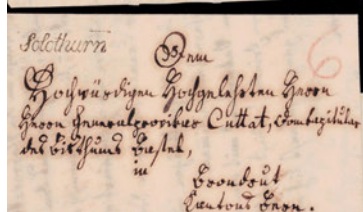 Solothurn
Dem
6
Hochwürdigen Hochgelehrten Herrn
Herrn Generalprovikar Cuttat, Domkapitular
des Bisthums Basel,
in
Bruntrut
Kantons Bern.